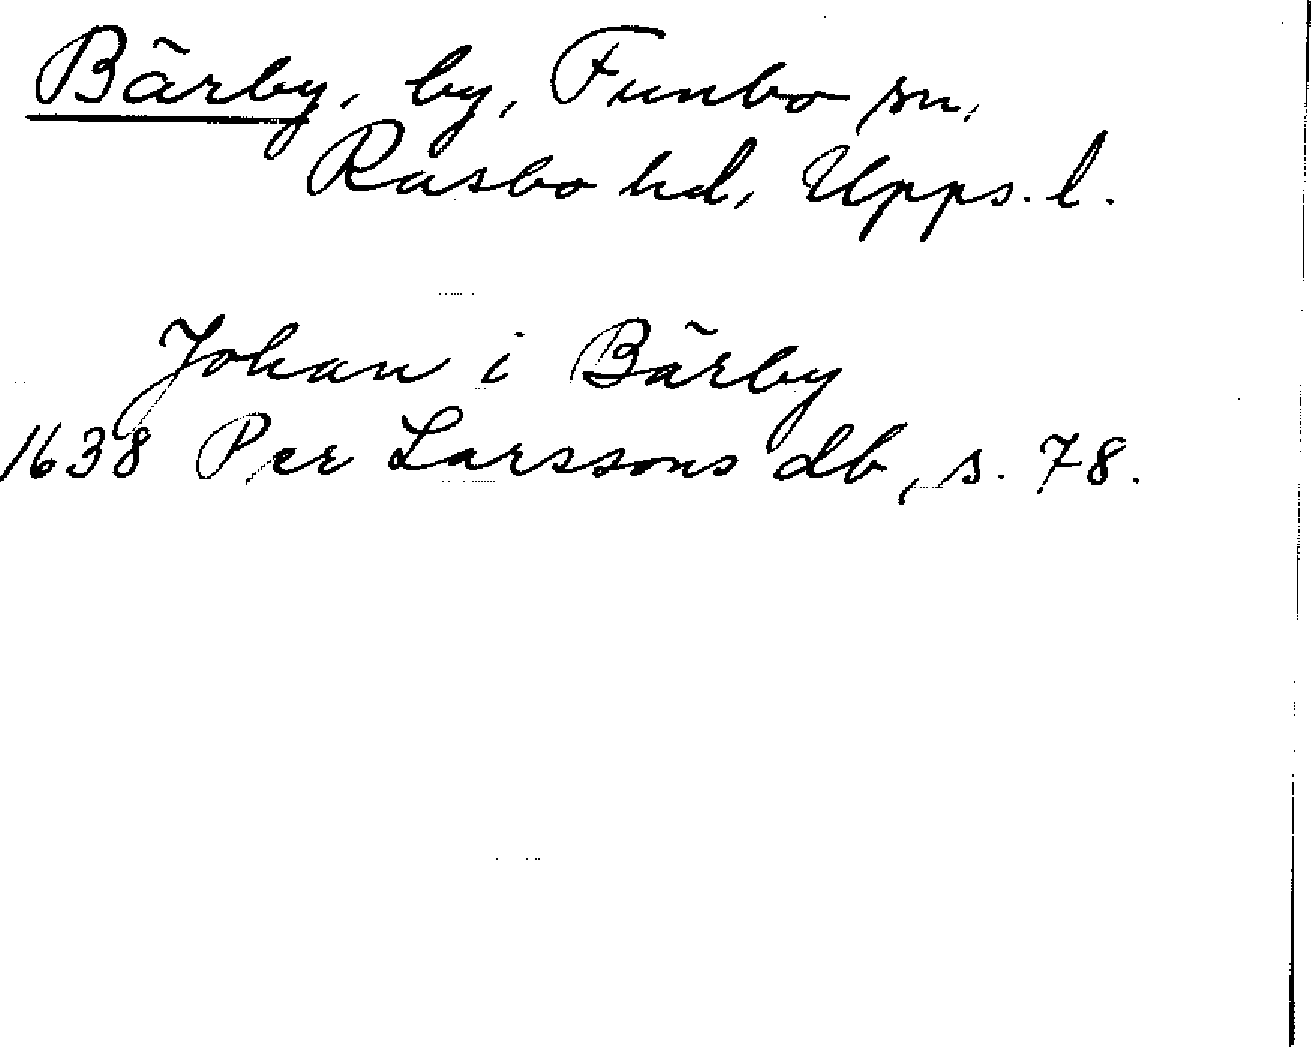 Bärby, by, Funbo sn,
Rasbo hd, Upps. l.
Johan i Bärby
1638 Per Larssons db, s. 78.